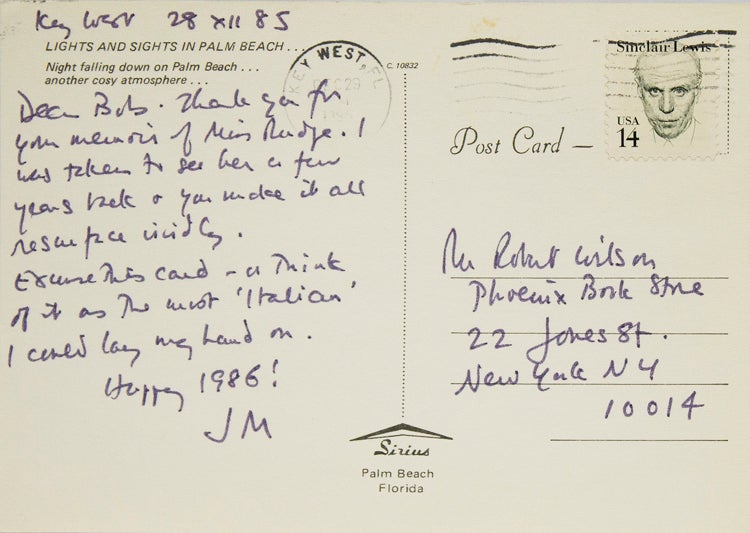 Key West 28 XII 85
LIGHTS AND SIGHTS IN PALM BEACH . . .
Night falling down on Palm Beach . . .
another cosy atmosphere . . .
Dear Bob. Thank you for
your memoir of Miss Rudge. I
was taken to see her a few
years back & you make it all
resurface vividly.
Excuse this card – or think
of it as the most 'Italian'
I could lay my hand on.
Happy 1986!
JM
KEY WEST, FL
C. 10832
Sinclair Lewis
USA
14
Post Card —
Mr Robert Wilson
Phoenix Book Store
22 Jones St.
New York NY
10014
Sirius
Palm Beach
Florida